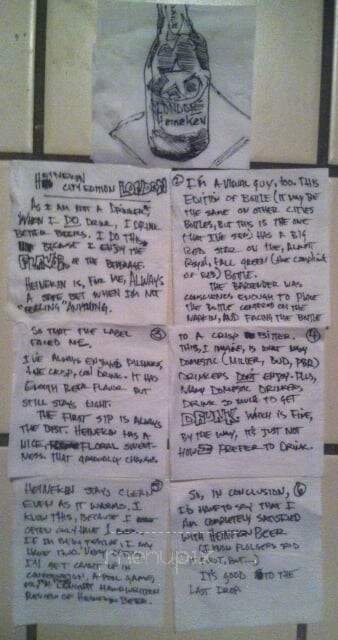 LONDON
Heineken
HEINEKEN
CITY EDITION LONDON
AS I AM NOT A DRINKER,
WHEN I DO DRINK, I DRINK
BETTER BEERS. I DO THIS
BECAUSE I ENJOY THE
FLAVOR OF THE BEVERAGE.
HEINEKEN IS, FOR ME, ALWAYS
A SAFE BET WHEN I'M NOT
"FEELING" ANYTHING.
2
I'M A VISUAL GUY, TOO. THIS
EDITION OF BOTTLE (IT MAY BE
THE SAME ON OTHER CITIES
BOTTLES, BUT THIS IS THE ONE
THAT I'VE SEEN) HAS A BIG
RED STAR ON THE, ALMOST
ROYAL, FALL GREEN (THE
OF RED) BOTTLE.
THE BARTENDER WAS
ENOUGH TO PLACE
THE BOTTLE CENTERED ON THE
NAPKIN, AND FACING THE BOTTLE
3
SO THAT THE LABEL
FACED ME.
I'VE ALWAYS ENJOYED PILSNERS,
THE CRISP, DRINK. IT HAS
ENOUGH BEER FLAVOR BUT
STILL STAYS LIGHT.
THE FIRST SIP IS ALWAYS
THE BEST. HEINEKEN HAS A
NICE, FLORAL SWEET-
NESS THAT GRADUALLY CHANGES
4
TO A CRISP BITTER.
THIS, I IMAGINE, IS WHAT MANY
DOMESTIC (MILLER, BUD, PBR)
DRINKERS DON'T ENJOY. PLUS,
MANY DOMESTIC DRINKERS
DRINK SO MUCH TO GET
DRUNK WHICH IS FINE,
BY THE WAY, IT'S JUST NOT
HOW I PREFER TO DRINK.
5
HEINEKEN STAYS CLEAN
EVEN AS IT WARMS. I
KNOW THIS, BECAUSE I
OFTEN ONLY HAVE 1 BEER.
IF I'M FESTIVE, I MAY
HAVE TWO.
I'LL GET CAUGHT UP IN
CONVERSATION, A POOL GAME,
HANDWRITTEN
REVIEW OF HEINEKEN BEER.
6
SO, IN CONCLUSION,
I'D HAVE TO SAY THAT I
AM COMPLETELY SATISFIED
WITH HEINEKEN BEER
NOT, BUT...)
IT'S GOOD TO THE
LAST DROP
menupix